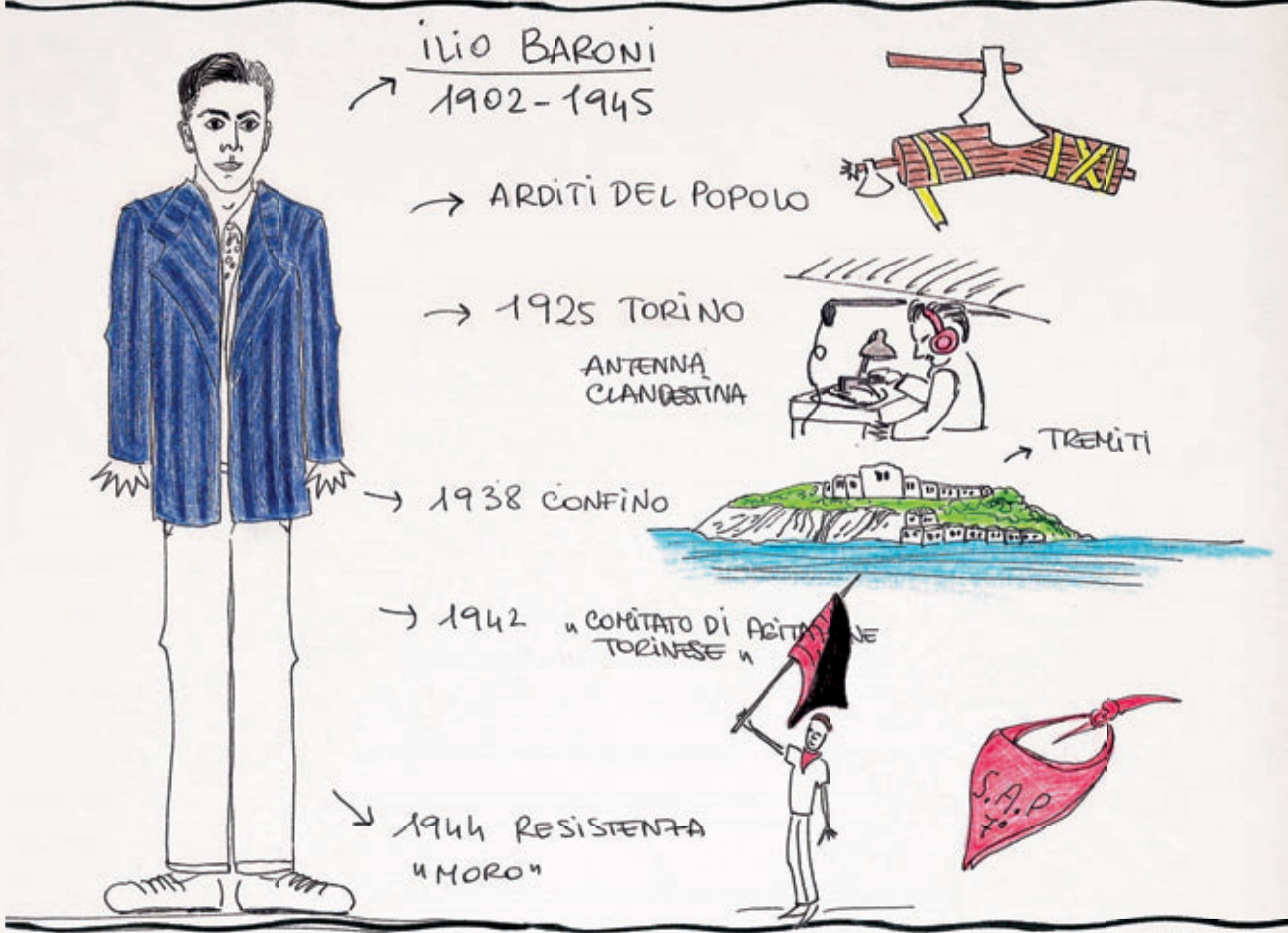 iLiO BARONi
1902-1945
ARDITI DEL POPOLO
1925 TORiNO
ANTENNA
CLANDESTINA
TREMiTi
1938 CONFiNO
1942 "COMiTATO Di
TORiNESE"
S.A.P
7°
1944 RESiSTENZA
"MORO"